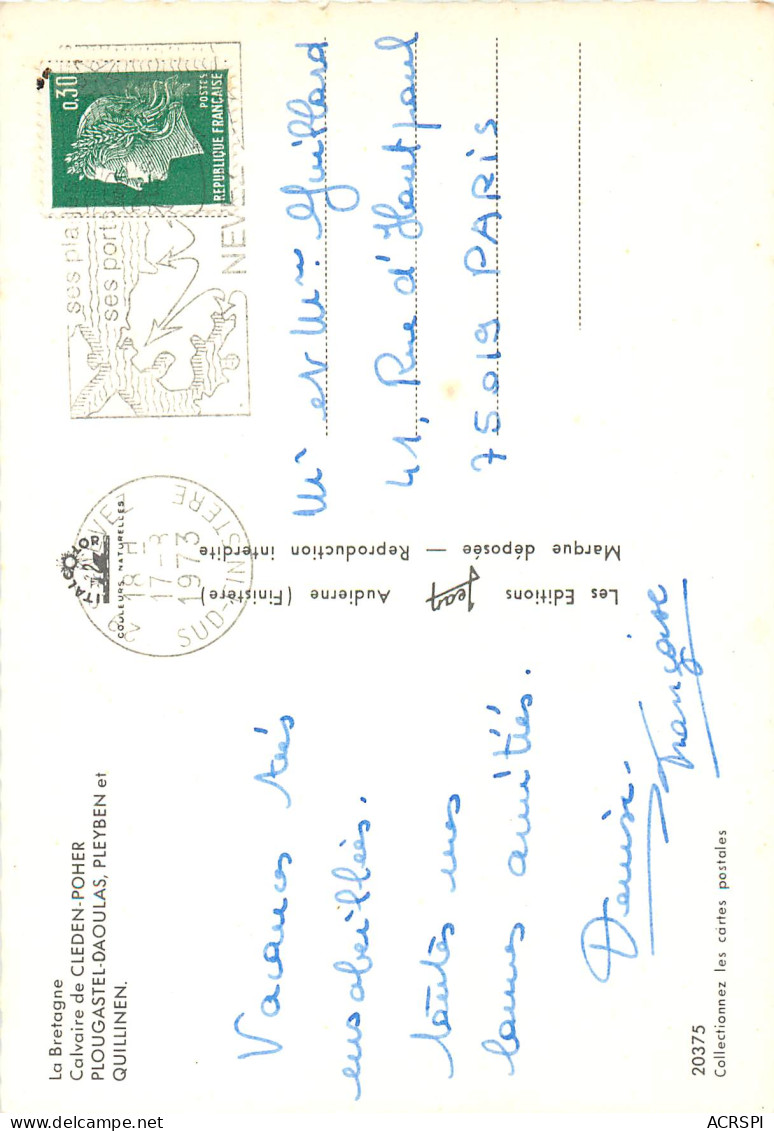 La Bretagne
Calvaire de CLEDEN-POHER
PLOUGASTEL-DAOULAS, PLEYBEN et
QUILLINEN.
Vacances très
ensoleillées.
toutes nos
bonnes amitiés.
Denise.
Françoise
20375
Collectionnez les cartes postales
Les Editions Jean Audierne (Finistère)
Marque déposée — Reproduction interdite
ITALCOLOR
COULEURS NATURELLES
29 NEVEZ
18 H
17-8
1973
SUD-FINISTERE
ses plages
ses ports
NEVEZ
0,30
POSTES
REPUBLIQUE FRANÇAISE
Mr et Mme Guillard
41, Rue d'Hautpoul
75019 PARIS
delcampe.net
ACRSPI